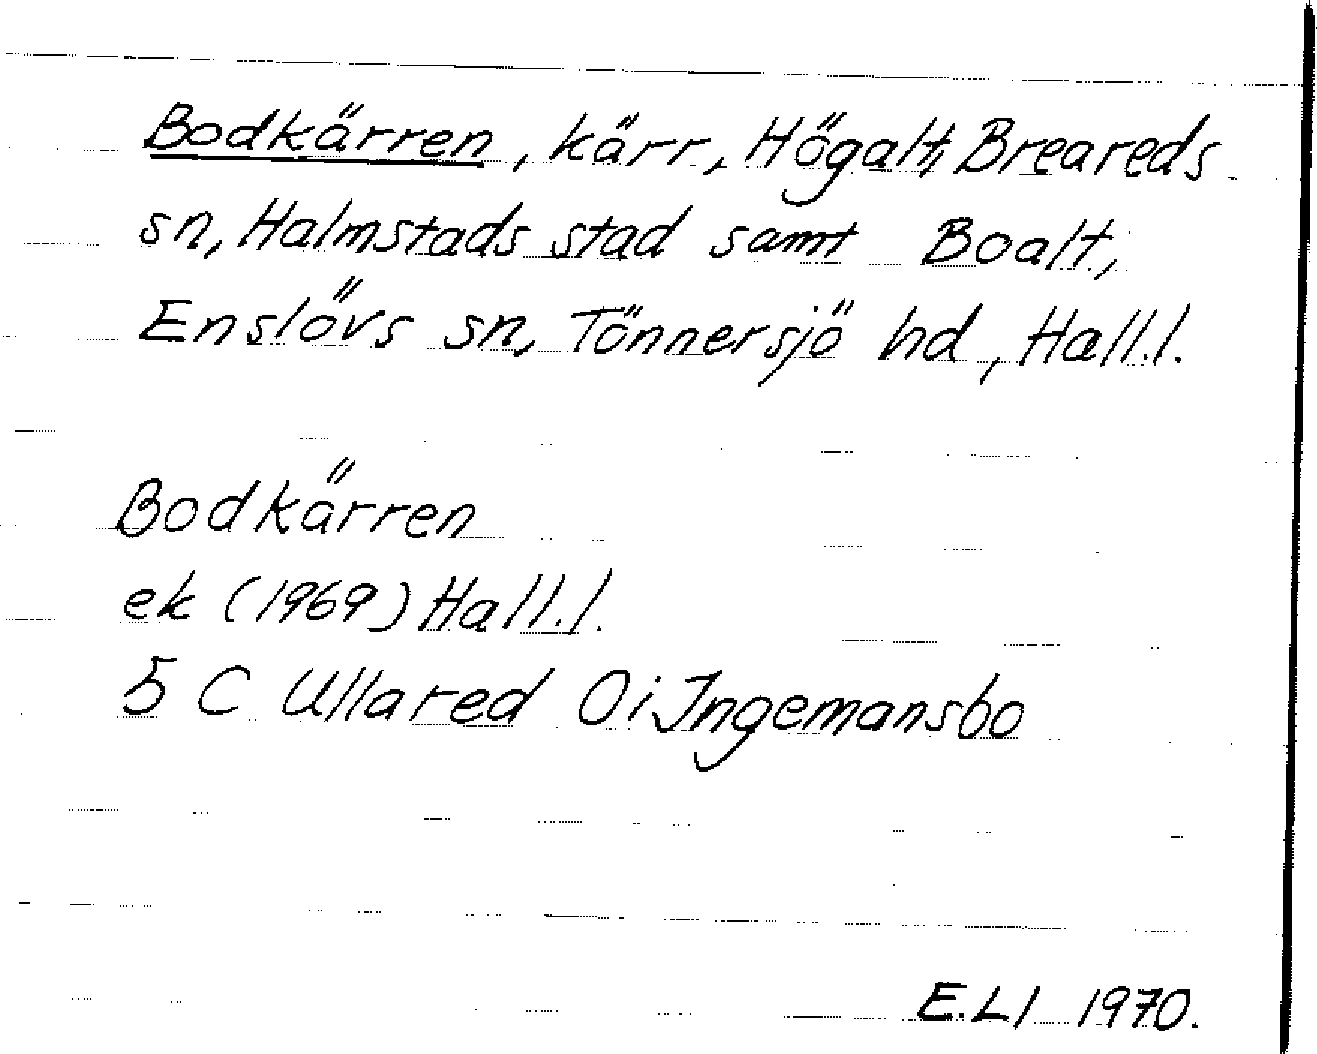 Bodkärren, kärr, Högalt, Breareds
sn, Halmstads stad samt Boalt,
Enslövs sn, Tönnersjö hd, Hall.l.
Bodkärren
ek (1969) Hall.l.
5 C Ullared Oi Ingemansbo
E.LI 1970.